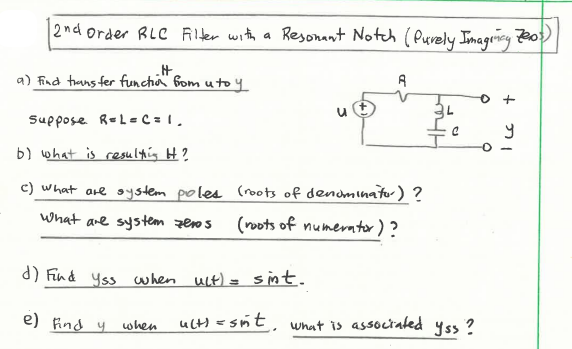 2nd Order RLC Filter with a Resonant Notch (Purely Imaginary Zeros)
a) Find transfer function H from u to y
Suppose R=L=C=1.
R
u
+
L
C
+
y
−
b) what is resulting H?
c) what are system poles (roots of denominator)?
What are system zeros (roots of numerator)?
d) Find yss when u(t) = sint.
e) Find y when u(t) = sint. what is associated yss?